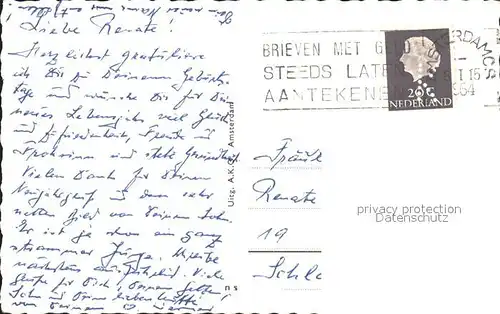 Liebe Renate!
Herzlichst gratuliere
ich Dir zu Deinem Geburts-
tage und wünsche Dir für Dein
neues Lebensjahr viel Glück
und Zufriedenheit, Freude und
Frohsinn und stets Gesundheit
Vielen Dank für Deinen
Neujahrsgruß und dem sehr
netten Bild von Deinem Sohn.
Er ist ja schon ein ganz
strammer Junge.
nächstens Viele
Grüße für Dich, Deinem
Sohn und Deine lieben
von Deinem
BRIEVEN MET GELD
STEEDS LATEN
AANTEKENEN
AMSTERDAM C.S.
1964
20c
NEDERLAND
Uitg. A.K.O. Amsterdam
Fräul
Renate
19
Schle
privacy protection
by VEDIA
ns